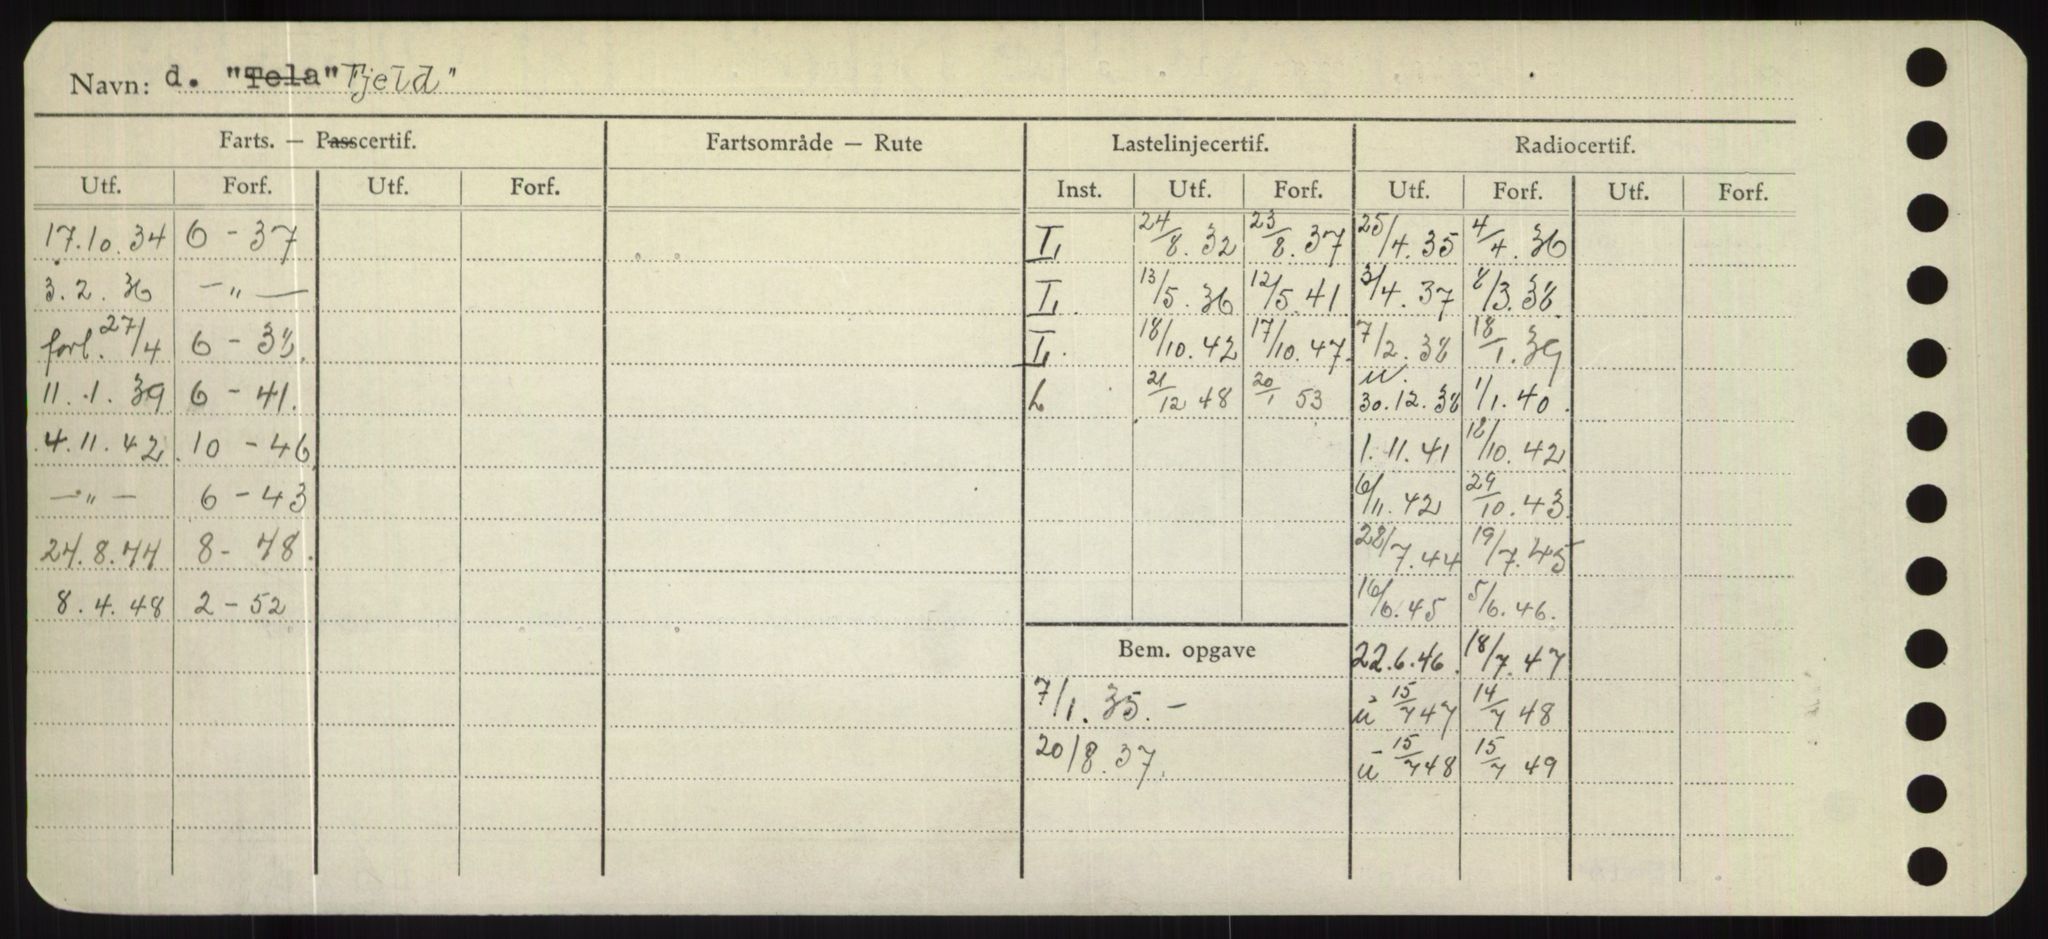 Navn: d. "Tela" Fjeld"
Farts. — Passcertif. Fartsområde — Rute Lastelinjecertif. Radiocertif.
Utf. Forf. Utf. Forf. Inst. Utf. Forf. Utf. Forf. Utf. Forf.
17.10.34 6 - 37 L 24/8.32 23/8.37 25/4.35 4/4.36
3.2.36 — " — L 13/5.36 12/5.41 3/4.37 8/3.38
forl. 27/4 6 - 38. L 18/10.42 17/10.47 7/2.38 18/1.39
11.1.39 6 - 41. L 21/12 48 20/1 53 u. 30.12.38 1/1.40
4.11.42 10 - 46 1.11.41 18/10.42
— " — 6 - 43 6/11.42 29/10.43
24.8.44 8 - 48. 28/7.44 19/7.45
8.4.48 2 - 52 16/6.45 5/6.46.
Bem. opgave 22.6.46. 18/7.47
7/1.35. — u 15/7 47 14/7 48
20/8.37. u 15/7 48 15/7 49